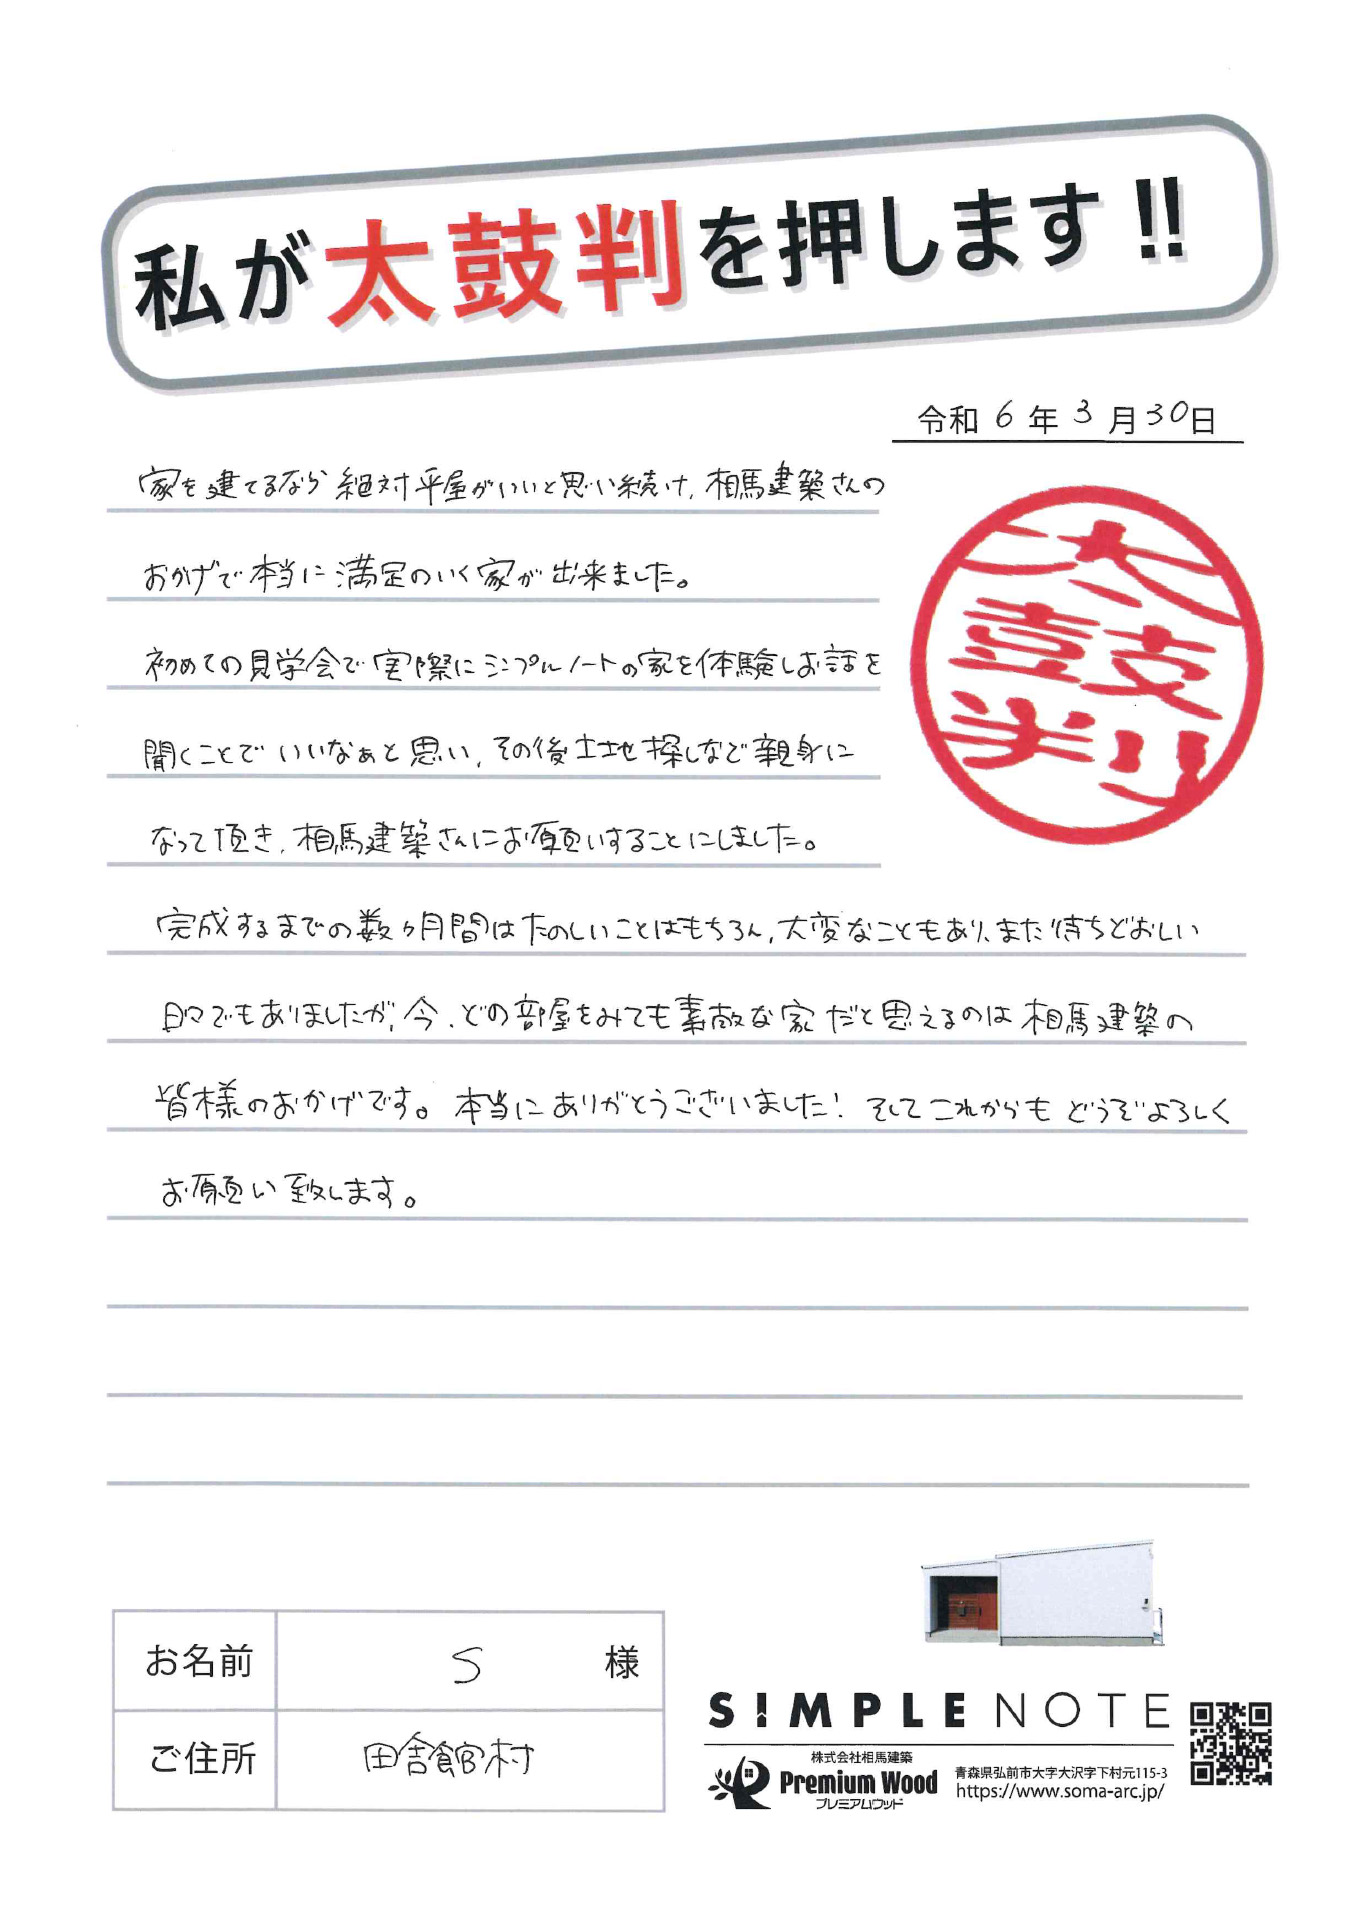 私が太鼓判を押します!!
令和 6 年 3 月 30日
家を建てるなら絶対平屋がいいと思い続け、相馬建築さんの
おかげで本当に満足のいく家が出来ました。
初めての見学会で実際にシンプルノートの家を体験しお話を
聞くことでいいなぁと思い、その後土地探しなど親身に
なって頂き、相馬建築さんにお願いすることにしました。
太鼓判
完成するまでの数ヶ月間はたのしいことはもちろん、大変なこともあり、また待ちどおしい
日々でもありましたが、今、どの部屋をみても素敵な家だと思えるのは相馬建築の
皆様のおかげです。本当にありがとうございました! そしてこれからもどうぞよろしく
お願い致します。
お名前 S 様
ご住所 田舎館村
SIMPLE NOTE
株式会社相馬建築
Premium Wood
プレミアムウッド
青森県弘前市大字大沢字下村元115-3
https://www.soma-arc.jp/